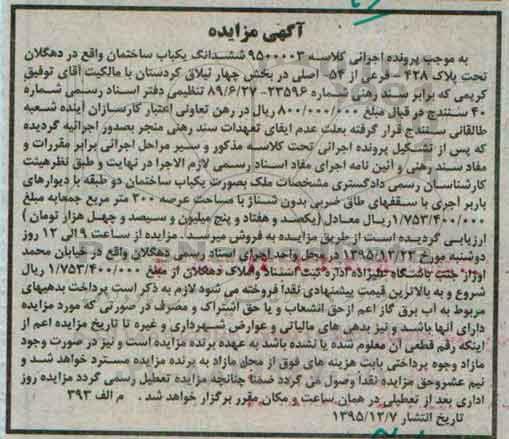 آگهی مزایده
به موجب پرونده اجرائی کلاسه ۹۵۰۰۰۰۳ ششدانگ یکباب ساختمان واقع در دهگلان
تحت پلاک ۴۲۸ - فرعی از ۵۴- اصلی در بخش چهار ئیلاق کردستان با مالکیت آقای توفیق
کریمی که برابر سند رهنی شماره ۲۳۵۹۶- ۸۹/۶/۲۷ تنظیمی دفتر اسناد رسمی شماره
۴۰ سنندج در قبال مبلغ ۸۰۰/۰۰۰/۰۰۰ ریال در رهن تعاونی اعتبار کارسازان آینده شعبه
طالقانی سنندج قرار گرفته بعلت عدم ایفای تعهدات سند رهنی منجر بصدور اجرائیه گردیده
که پس از تشکیل پرونده اجرائی تحت کلاسه مذکور و سیر مراحل اجرائی برابر مقررات و
مفاد سند رهنی و آئین نامه اجرای مفاد اسناد رسمی لازم الاجرا در نهایت و طبق نظرهیئت
کارشناسان رسمی دادگستری مشخصات ملک بصورت یکباب ساختمان دو طبقه با دیوارهای
باربر آجری با سقفهای طاق ضربی بدون شناژ با مساحت عرصه ۲۰۰ متر مربع جمعابه مبلغ
۱/۷۵۳/۴۰۰/۰۰۰ریال معادل (یکصد و هفتاد و پنج میلیون و سیصد و چهل هزار تومان )
ارزیابی گردیده است از طریق مزایده به فروش میرسد . مزایده از ساعت ۹ الی ۱۲ روز
دوشنبه مورخ ۱۳۹۵/۱۲/۲۳ در محل واحد اجرای اسناد رسمی دهگلان واقع در خیابان محمد
اوراز جنب باشگاه علیزاده اداره ثبت اسناد و املاک دهگلان از مبلغ ۱/۷۵۳/۴۰۰/۰۰۰ ریال
شروع و به بالاترین قیمت پیشنهادی نقدا فروخته می شود لازم به ذکر است پرداخت بدهیهای
مربوط به آب برق گاز اعم از حق انشعاب و یا حق اشتراک و مصرف در صورتی که مورد مزایده
دارای آنها باشد و نیز بدهی های مالیاتی و عوارض شهرداری و غیره تا تاریخ مزایده اعم از
اینکه رقم قطعی آن معلوم شده یا نشده باشد به عهده برنده مزایده است و نیز در صورت وجود
مازاد وجوه پرداختی بابت هزینه های فوق از محل مازاد به برنده مزایده مسترد خواهد شد و
نیم عشروحق مزایده نقدا وصول می گردد ضمنا چنانچه مزایده تعطیل رسمی گردد مزایده روز
اداری بعد از تعطیلی در همان ساعت و مکان مقرر برگزار خواهد شد . م الف ۳۹۳
تاریخ انتشار ۱۳۹۵/۱۲/۷